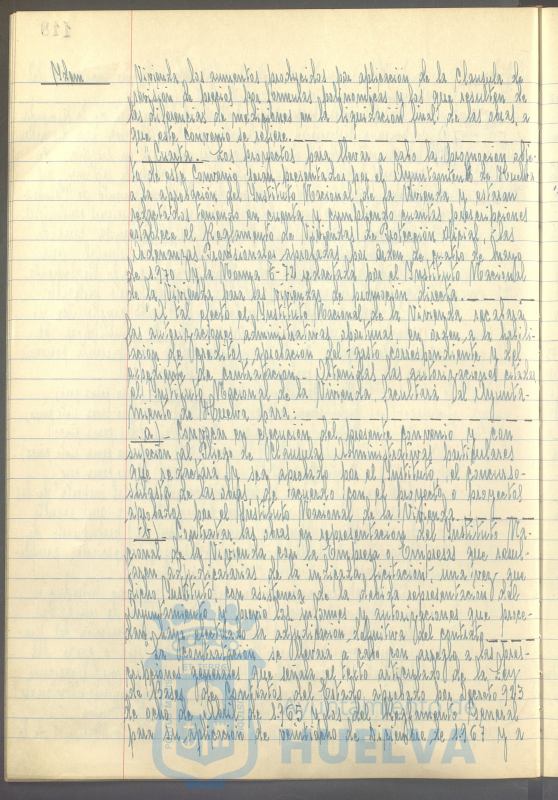 118
Idem
Vivienda, los aumentos producidos por aplicación de la clausula de
revisión de precios por formulas polinomicas y los que resulten de
las diferencias de mediciones en la liquidación final de las obras, a
que este convenio se refiere.
"Cuarta.- Los proyectos para llevar a cabo la promoción obje-
to de este Convenio seran presentados por el Ayuntamiento de Huelva
a la aprobación del Instituto Nacional de la Vivienda y estaran
redactados teniendo en cuenta y cumpliendo cuantas prescripciones
establece el Reglamento de Viviendas de Protección Oficial, las
Ordenanzas Provisionales aprobadas por Orden de cuatro de mayo
de 1970 y la Norma redactada por el Instituto Nacional
de la Vivienda para las viviendas de promoción directa.
A tal efecto el Instituto Nacional de la Vivienda recabara
las autorizaciones administrativas oportunas en orden a la habili-
tación de creditos, aprobación del gasto correspondiente y del
expediente de contratación. Obtenidas las autorizaciones citadas
el Instituto Nacional de la Vivienda, facultará al Ayunta-
miento de Huelva para:
a).- Convocar en ejecución del presente Convenio y con
sujeción al Pliego de Clausulas Administrativas particulares
que redactará y sea aprobado por el Instituto, el concurso-
subasta de las obras, de acuerdo con el proyecto o proyectos
aprobados por el Instituto Nacional de la Vivienda.
b).- Contratar las obras en representación del Instituto Na-
cional de la Vivienda con la Empresa o Empresas que resul-
taren adjudicatarias de la indicada licitación una vez que
dicho Instituto, con asistencia de la debida representación del
Ayuntamiento y previo los informes y autorizaciones que proce-
dan, haya acordado la adjudicación definitiva del contrato.
La contratación se llevara a cabo con arreglo a las pres-
cripciones generales que señala el texto articulado de la Ley
de Bases de Contratos del Estado aprobado por Decreto 923
de ocho de Abril de 1.965 y los del Reglamento General
para su aplicación de veintiocho de diciembre de 1.967 y a
Ayuntamiento de
HUELVA